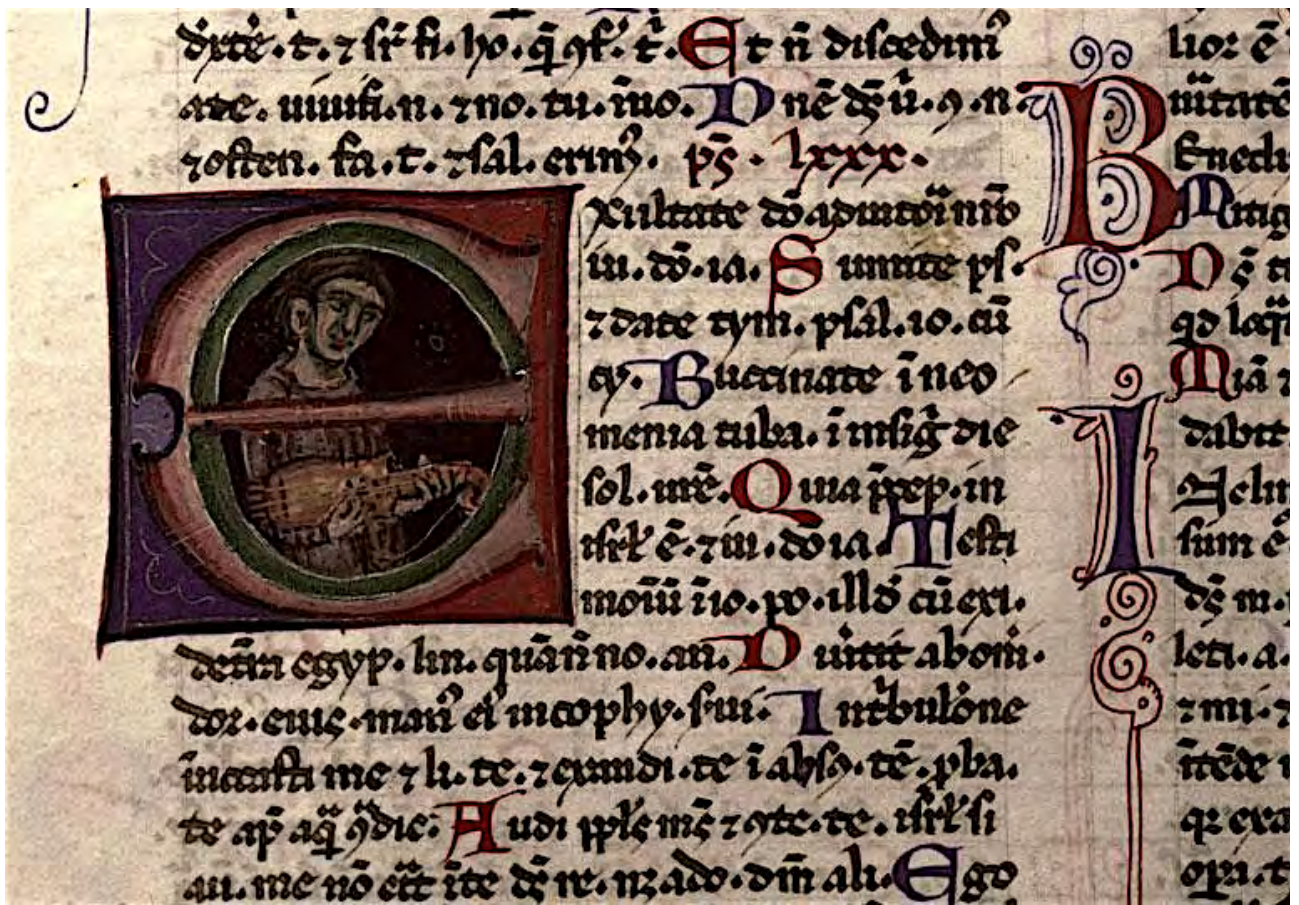 dext̄e. t. ⁊ sr̄ fi. ho. q̄ ꝯf. t̄. Et n̄ discedimꝰ
a te. uiuifi. n. ⁊ no. tu. īuo. Dn̄e ds̄ u̇. ꝯ. n.
⁊ osten. fa. t. ⁊ sal. erimꝰ. ps̄. lxxx.
Exultate dō adiutoī nr̄o
iu. dō. ia. Sumite ps.
⁊ date tym. psal. io. cū
cy. Buccinate ī neo
menia tuba. ī insiḡ die
sol. ur̄e. Quia p̄cep. in
isrł ē. ⁊ iu. dō ia. Testi
moīū ī io. po. illd̄ cū exi.
de t̄ra egyp. lin. quā n̄ no. au. Diūtit ab oneri.
dor. eius. manꝰ eiꝰ in cophy. s̄ui. In t̄bul̄one
inuocasti me ⁊ li. te. ⁊ exaudi. te ī absꝯ. tē. ꝓba.
te ap̄ aq̄ ꝯdic. Audi ppl̄s ms̄ ⁊ ꝯte. te. isrł si
au. me nō erit ī te ds̄ re. nꝫ ado. dm̄ ali. Ego
lior ē
uītatē
Benedi
Mitig
Ds̄
qd loq̄
Miā ⁊
dabit
I
sum
ds̄ m.
leti. a.
⁊ mi. ⁊
ītēde
opa. t